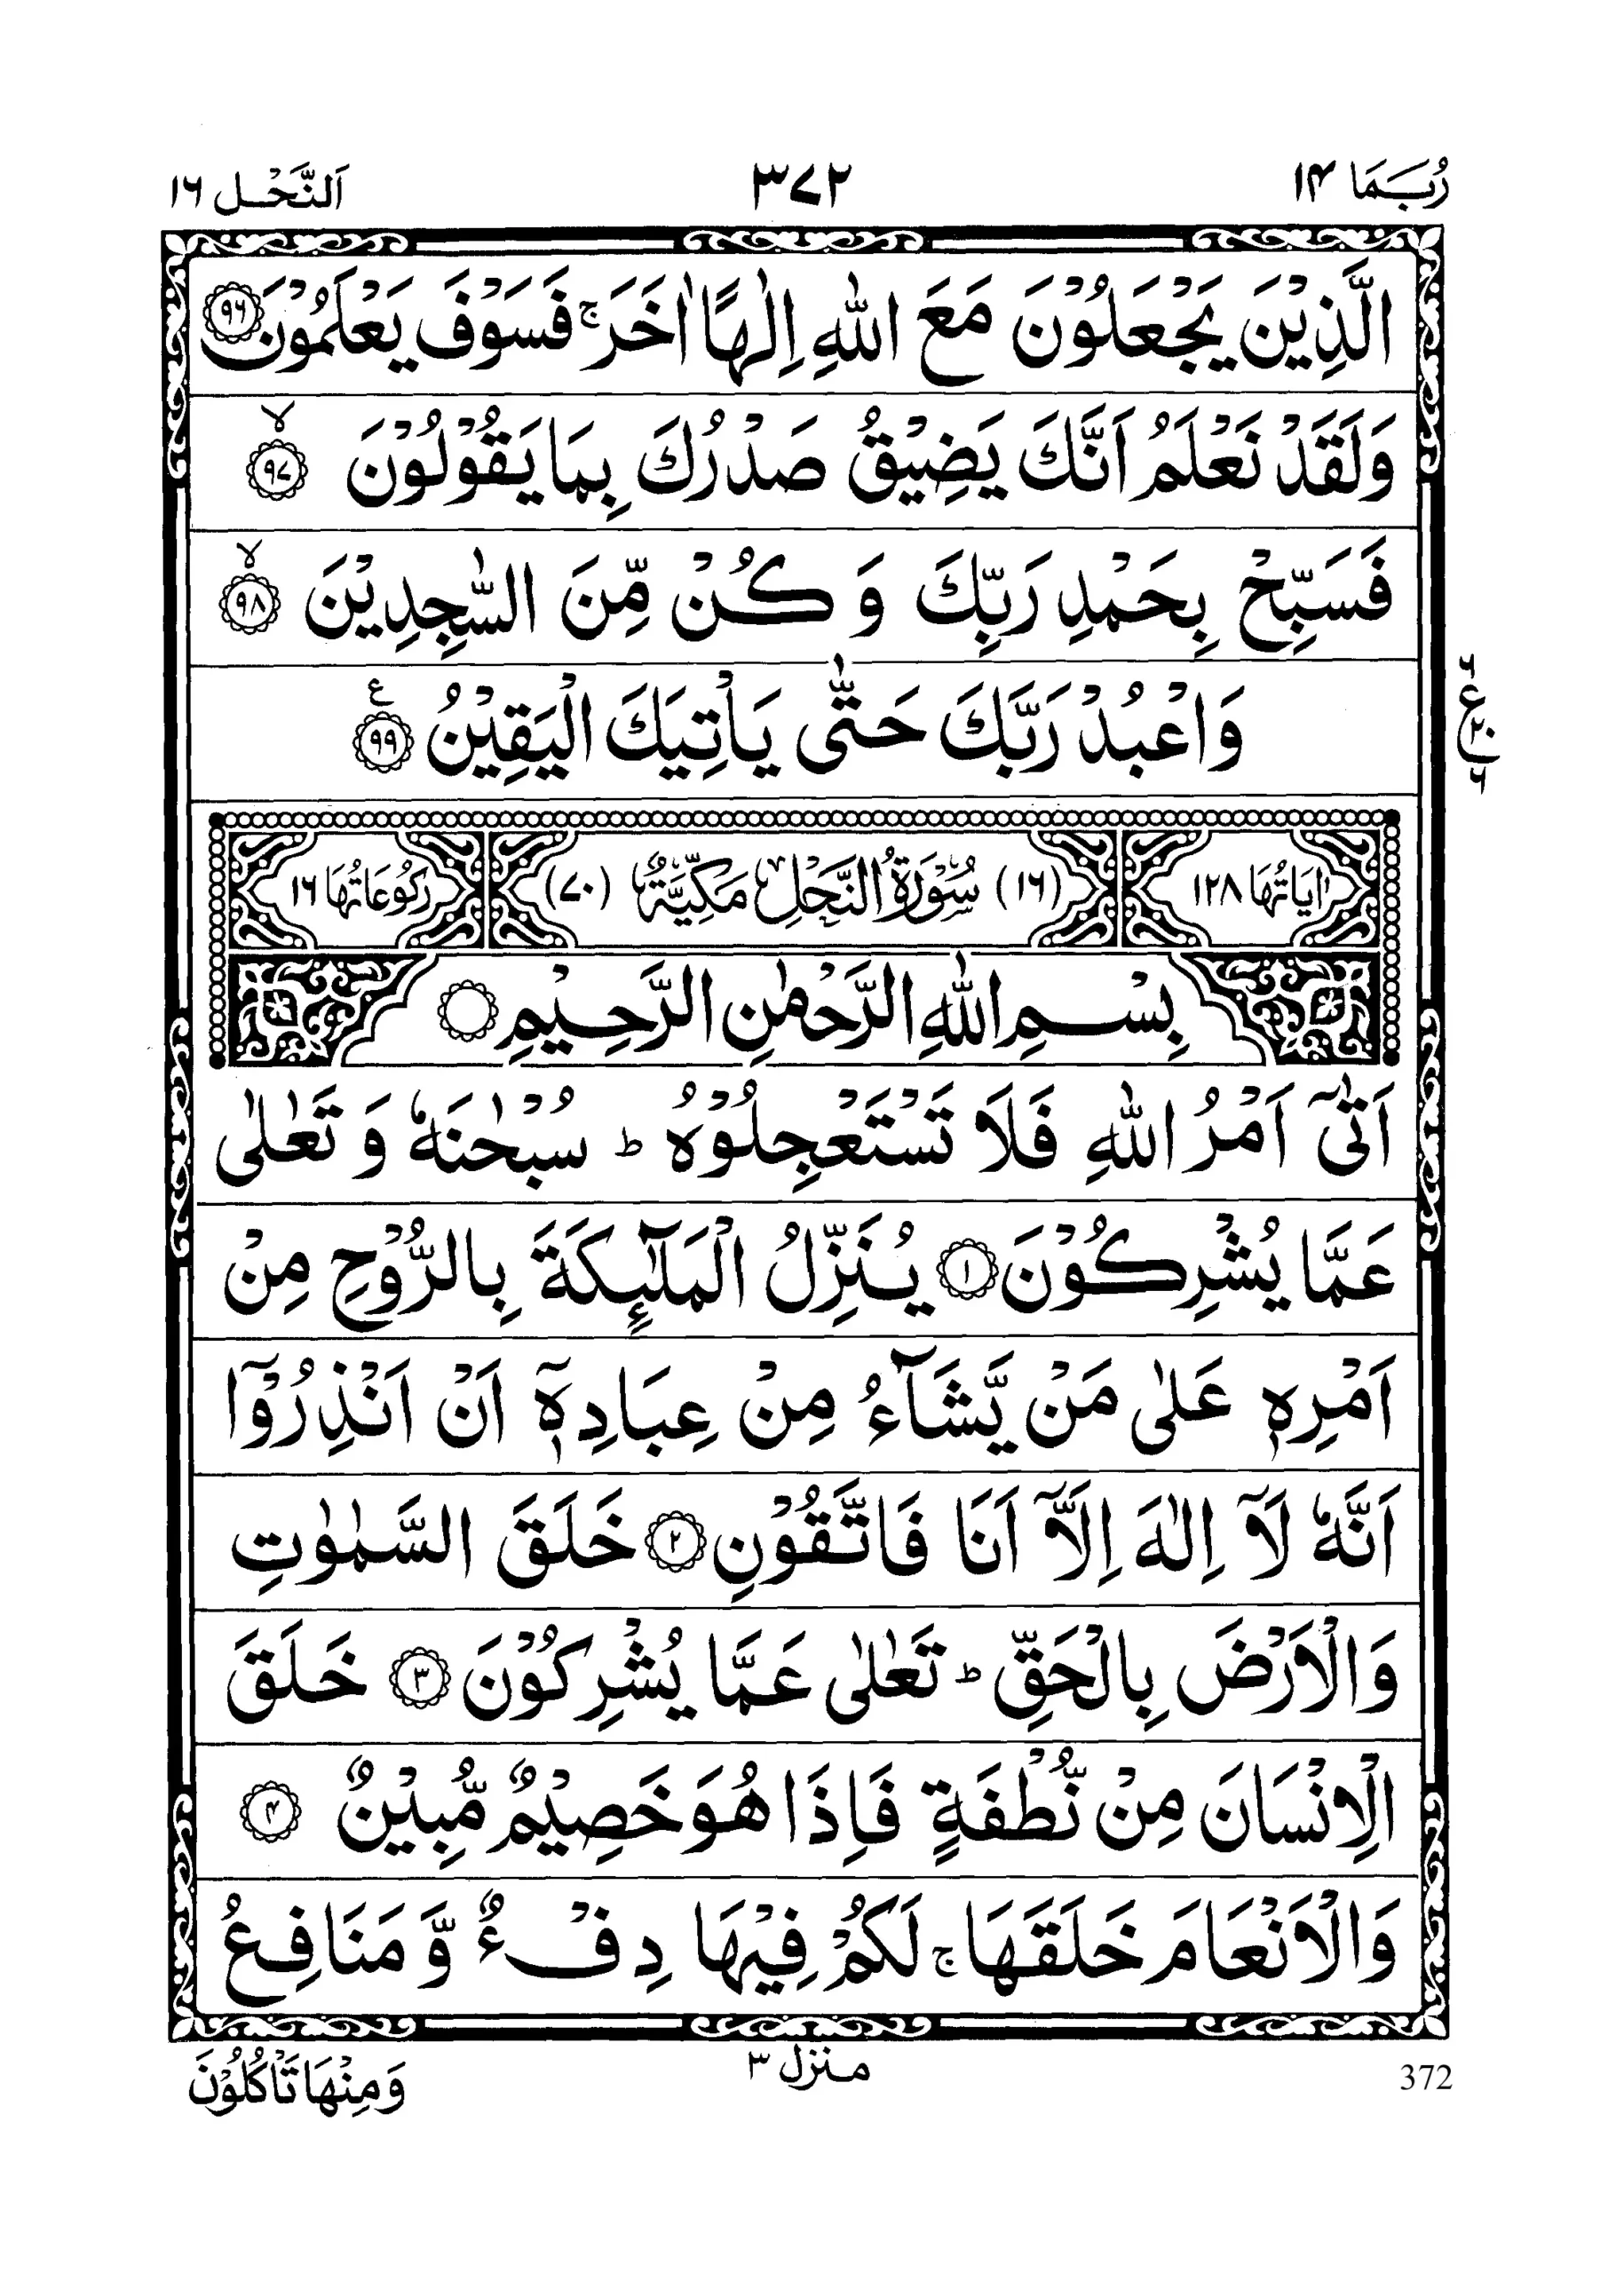 رُبَمَا ۱۴
۳۷۲
اَلنَّحْل ۱۶
الَّذِيْنَ يَجْعَلُوْنَ مَعَ اللّٰهِ اِلٰهًا اٰخَرَ ۚ فَسَوْفَ يَعْلَمُوْنَ ۹۶
وَلَقَدْ نَعْلَمُ اَنَّكَ يَضِيْقُ صَدْرُكَ بِمَا يَقُوْلُوْنَ ۙ ۹۷
فَسَبِّحْ بِحَمْدِ رَبِّكَ وَ كُنْ مِّنَ السّٰجِدِيْنَ ۙ ۹۸
وَاعْبُدْ رَبَّكَ حَتّٰى يَاْتِيَكَ الْيَقِيْنُ ع ۹۹
۶ ع ۲۰ ۶
اٰيَاتُهَا ۱۲۸ (۱۶) سُوْرَةُ النَّحْلِ مَكِّيَّةٌ (۷۰) رُكُوْعَاتُهَا ۱۶
بِسْمِ اللّٰهِ الرَّحْمٰنِ الرَّحِيْمِ
اَتٰۤى اَمْرُ اللّٰهِ فَلَا تَسْتَعْجِلُوْهُ ؕ سُبْحٰنَهٗ وَ تَعٰلٰى
عَمَّا يُشْرِكُوْنَ ۱ يُنَزِّلُ الْمَلٰٓئِكَةَ بِالرُّوْحِ مِنْ
اَمْرِهٖ عَلٰى مَنْ يَّشَآءُ مِنْ عِبَادِهٖۤ اَنْ اَنْذِرُوْۤا
اَنَّهٗ لَاۤ اِلٰهَ اِلَّاۤ اَنَا فَاتَّقُوْنِ ۲ خَلَقَ السَّمٰوٰتِ
وَالْاَرْضَ بِالْحَقِّ ؕ تَعٰلٰى عَمَّا يُشْرِكُوْنَ ۳ خَلَقَ
الْاِنْسَانَ مِنْ نُّطْفَةٍ فَاِذَا هُوَ خَصِيْمٌ مُّبِيْنٌ ۴
وَالْاَنْعَامَ خَلَقَهَا ۚ لَكُمْ فِيْهَا دِفْءٌ وَّ مَنَافِعُ
372
منزل ۳
وَمِنْهَا تَاْكُلُوْنَ